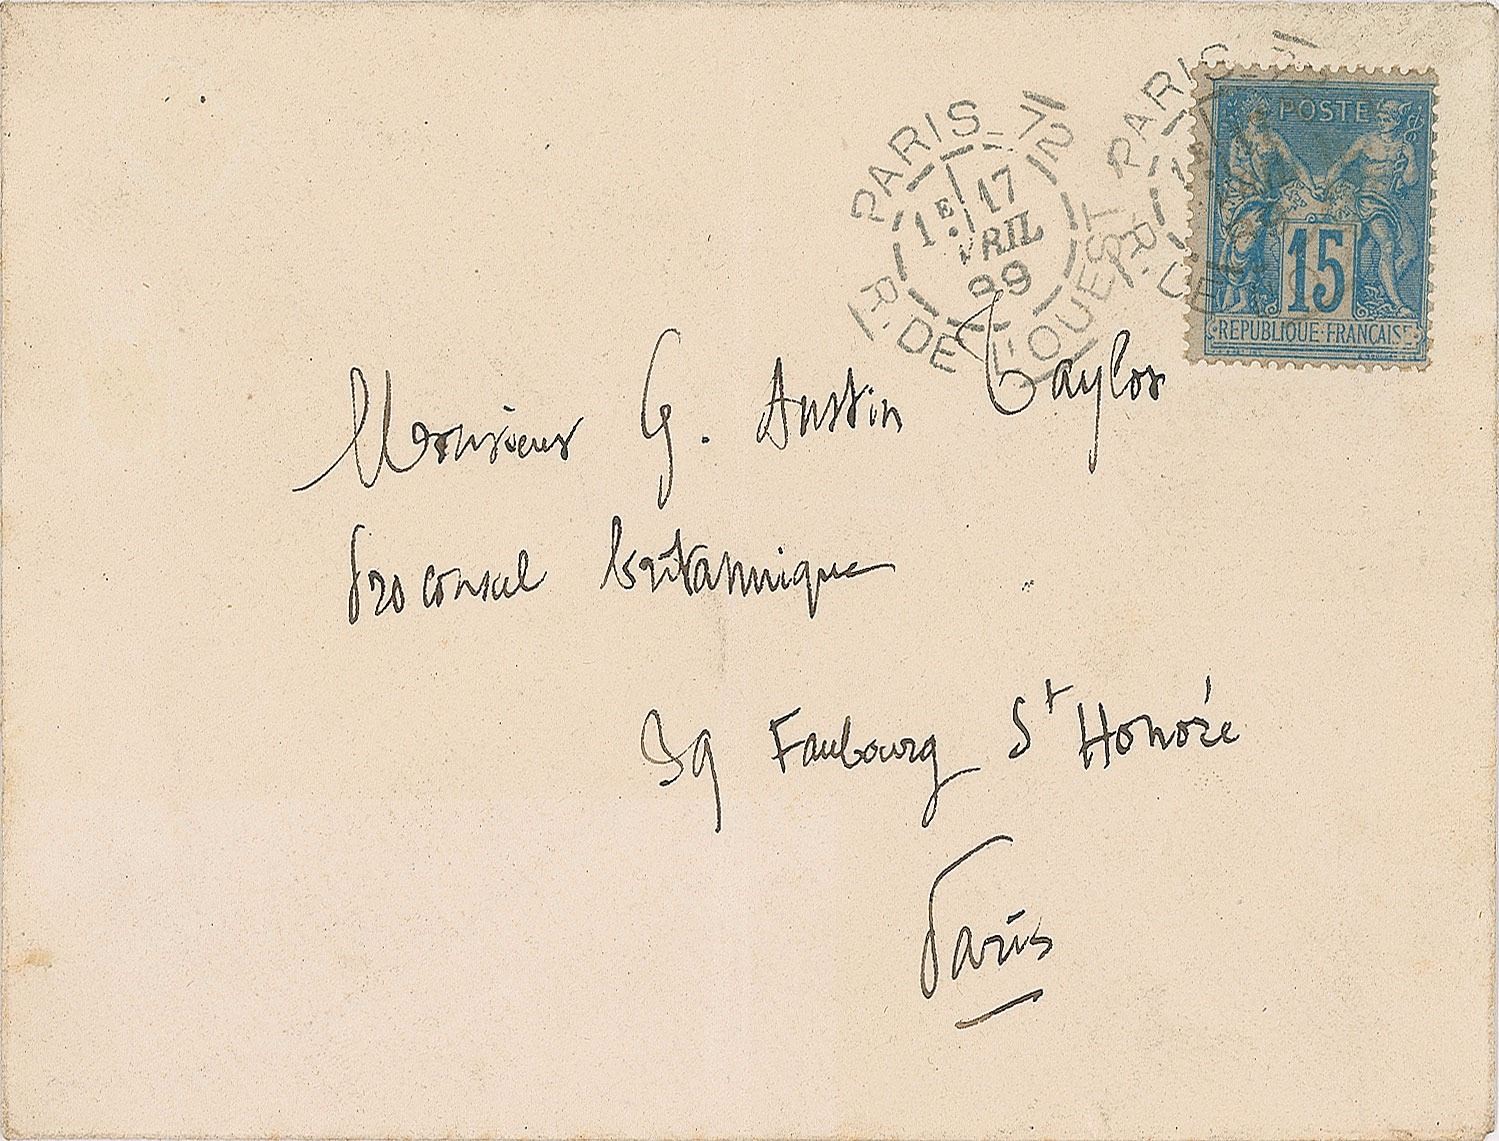 PARIS_72
1E 17
AVRIL
99
R. DE L'OUEST
PARIS
R. DE
POSTE
15
REPUBLIQUE FRANCAISE
Monsieur G. Austin Taylor
Proconsul britannique
39 Faubourg St Honoré
Paris